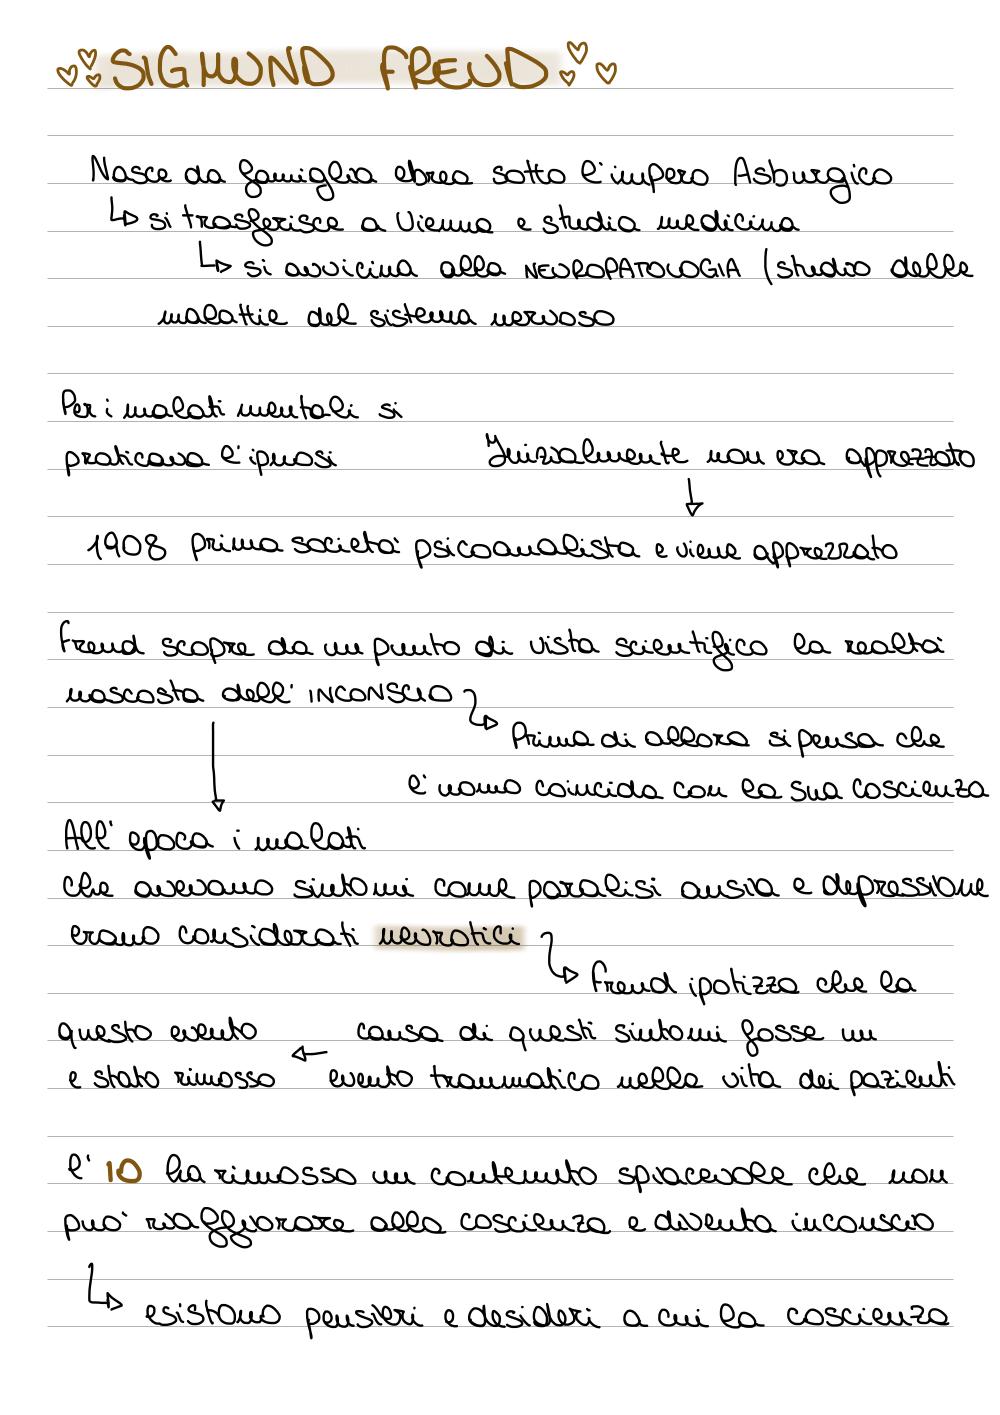 SIGMUND FREUD
Nasce da famiglia ebrea sotto l'impero Asburgico
si trasferisce a Vienna e studia medicina
si avvicina alla NEUROPATOLOGIA (studio delle
malattie del sistema nervoso
Per i malati mentali si
praticava l'ipnosi
Inizialmente non era apprezzato
1908 prima società psicoanalista e viene apprezzato
Freud scopre da un punto di vista scientifico la realtà
nascosta dell'INCONSCIO
Prima di allora si pensa che
l'uomo coincida con la sua coscienza
All'epoca i malati
che avevano sintomi come paralisi ansia e depressione
erano considerati neurotici
Freud ipotizza che la
causa di questi sintomi fosse un
evento traumatico nella vita dei pazienti
questo evento
e stato rimosso
l'IO ha rimosso un contenuto spiacevole che non
può riaffiorare alla coscienza e diventa inconscio
esistono pensieri e desideri a cui la coscienza